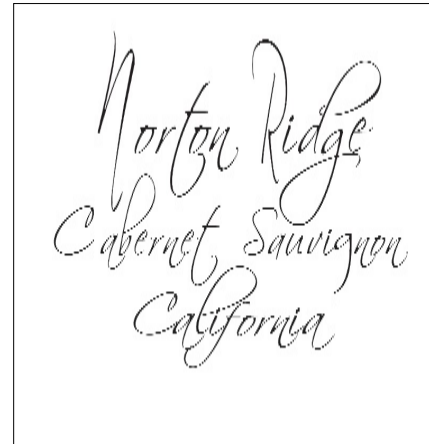 Norton Ridge
Cabernet Sauvignon
California